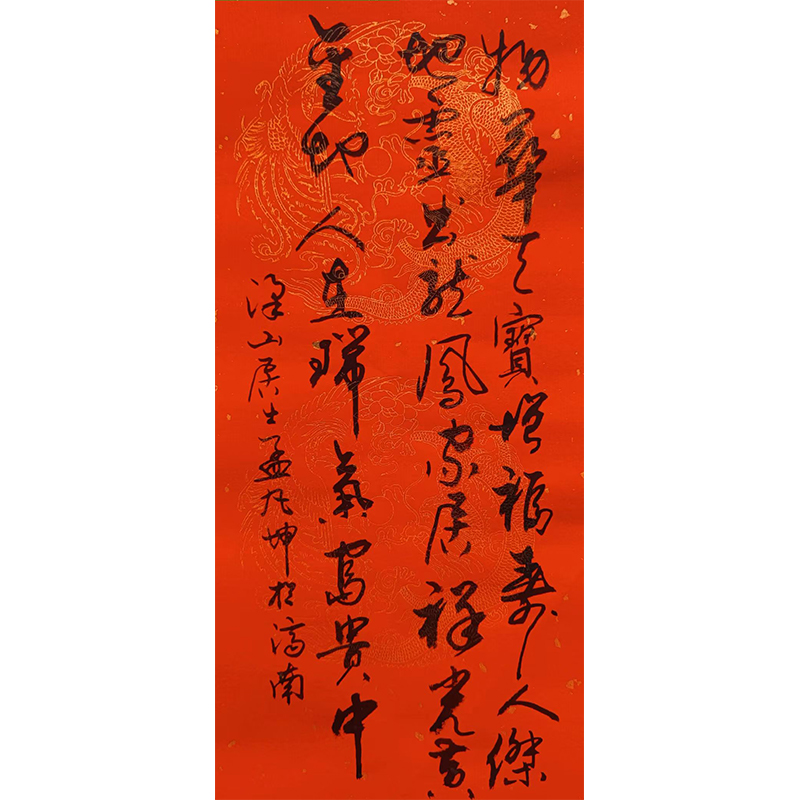 物華天寶增福壽人傑
地靈出龍鳳家居祥光黃
金地人在瑞氣富貴中
梁山居士孟凡坤於濟南